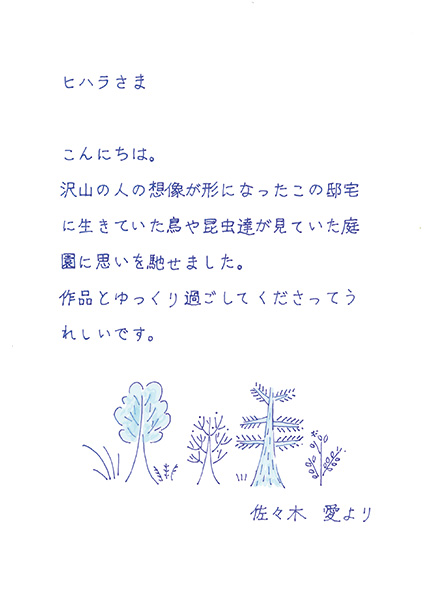 ヒハラさま
こんにちは。
沢山の人の想像が形になったこの邸宅
に生きていた鳥や昆虫達が見ていた庭
園に思いを馳せました。
作品とゆっくり過ごしてくださってう
れしいです。
佐々木　愛より